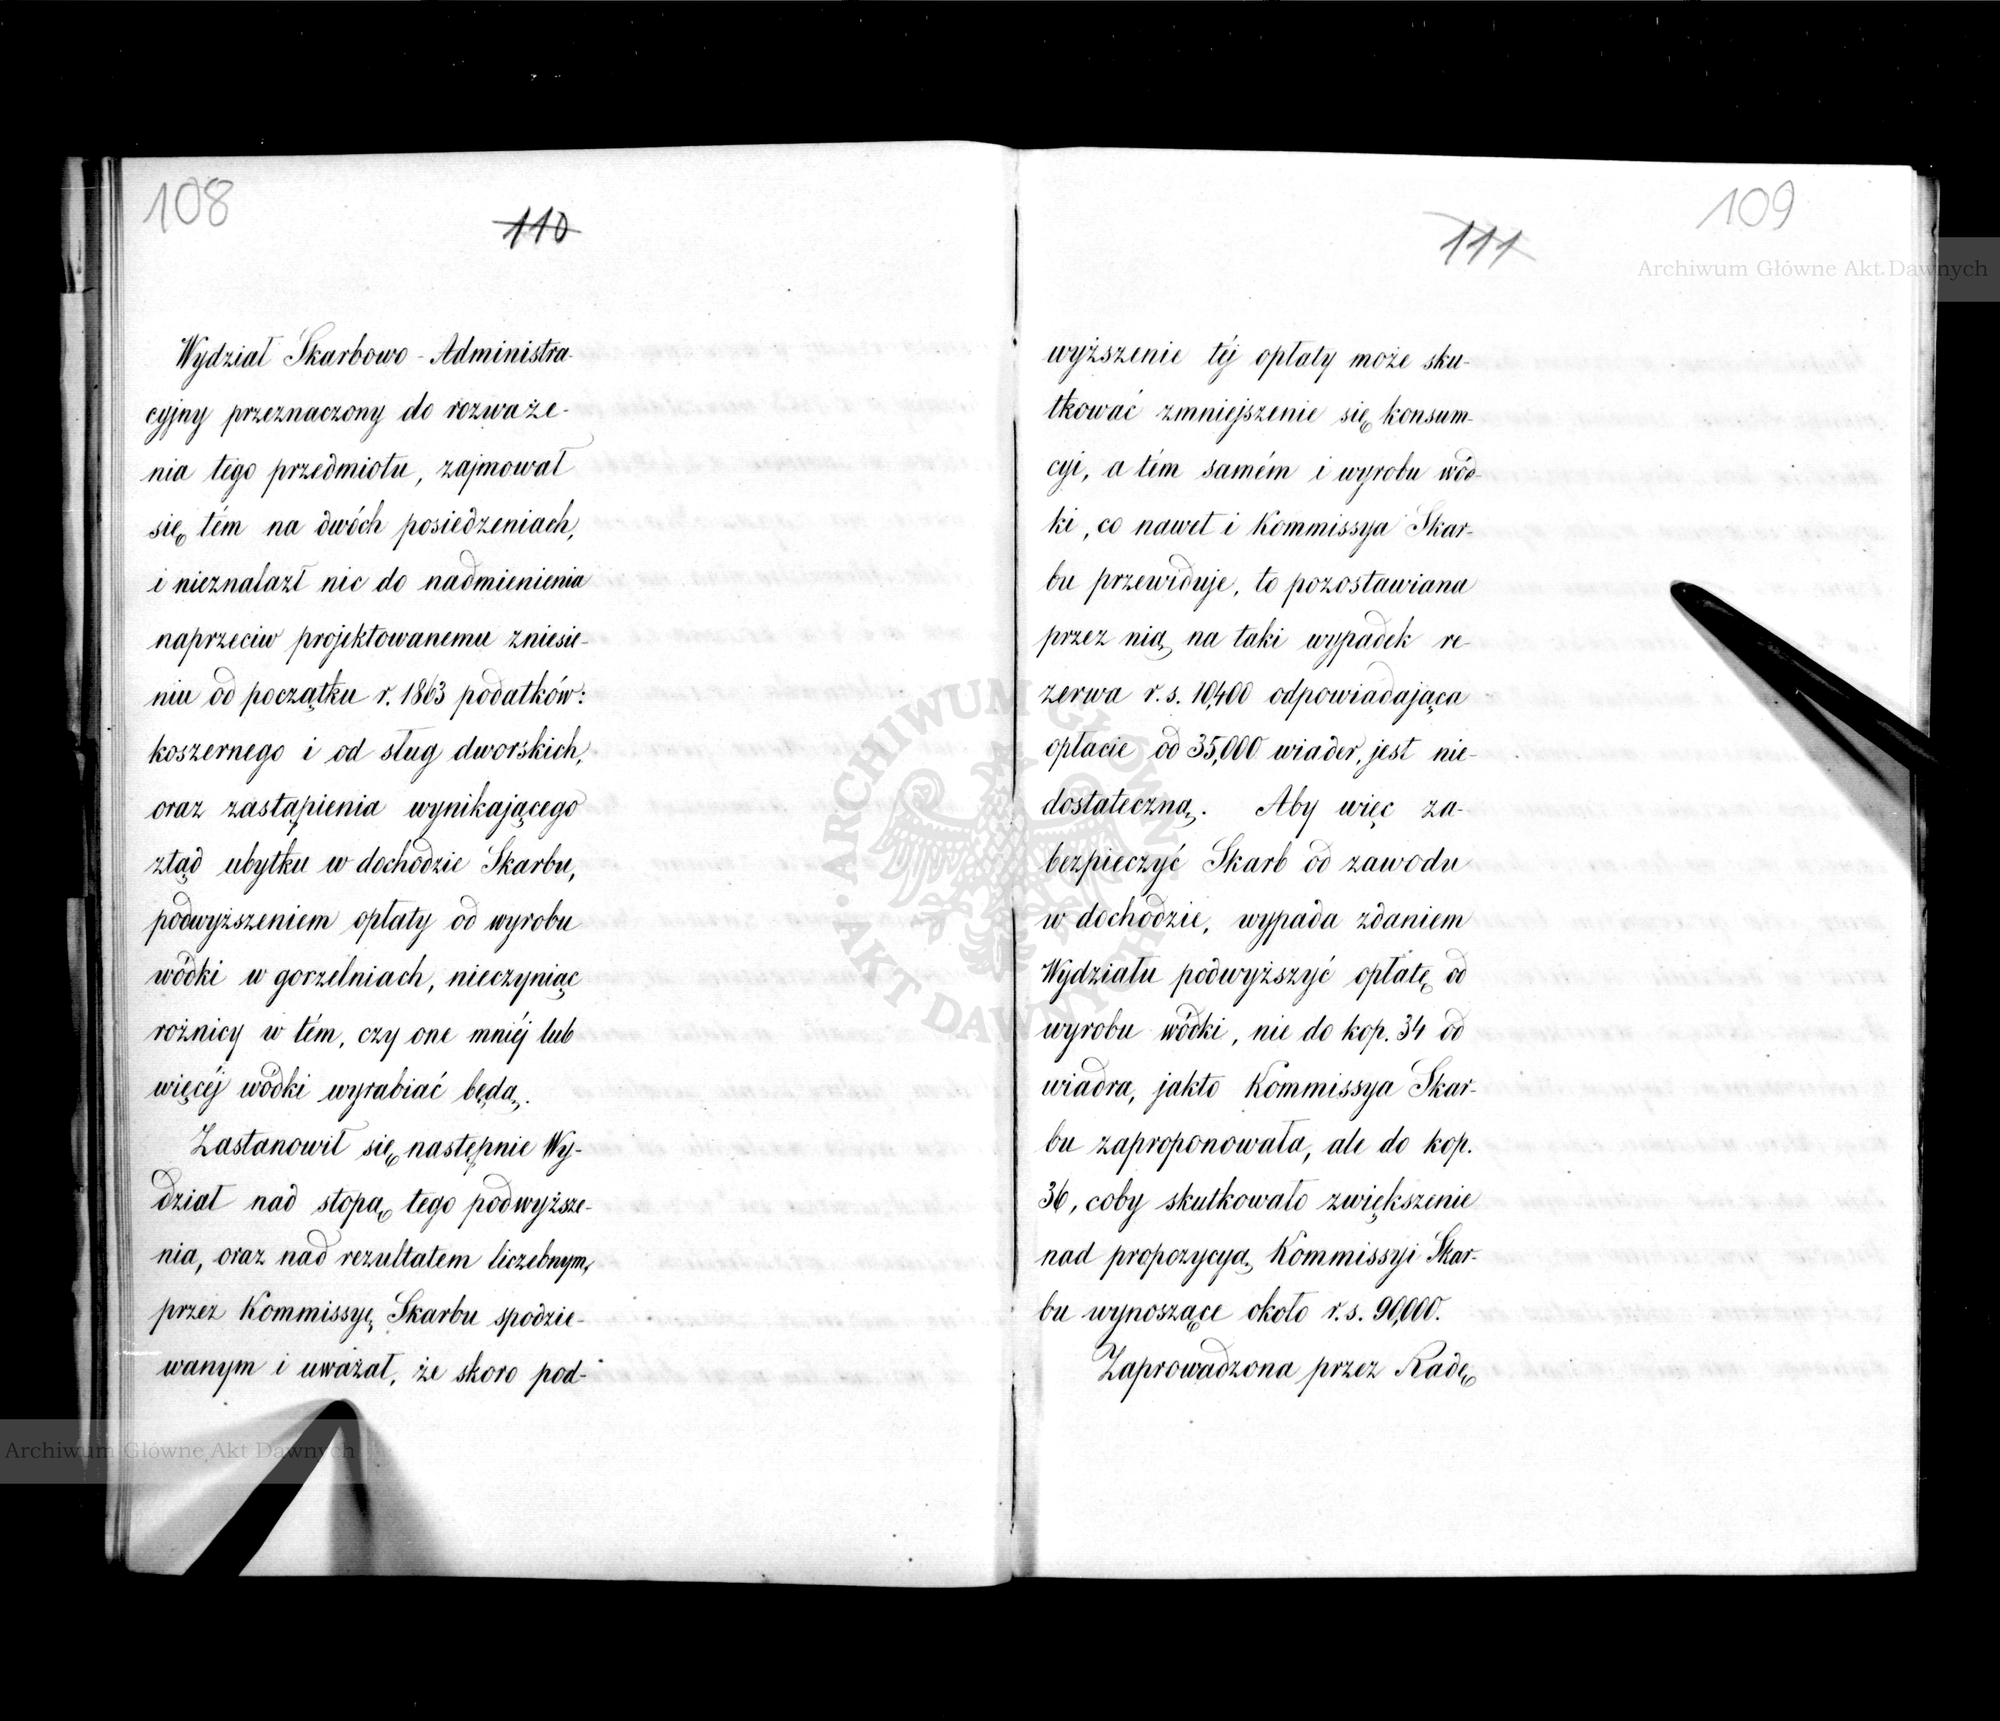 108
110
Wydział Skarbowo - Administra-
cyjny przeznaczony do rozważe-
nia tego przedmiotu, zajmował
się tém na dwóch posiedzeniach,
i nieznalazł nic do nadmienienia
naprzeciw projektowanemu zniesie-
niu od początku r. 1863 podatków:
koszernego i od sług dworskich,
oraz zastąpienia wynikającego
ztąd ubytku w dochodzie Skarbu,
podwyższeniem opłaty od wyrobu
wódki w gorzelniach, nieczyniąc
rożnicy w tém, czy one mniéj lub
więcéj wódki wyrabiać będą.
Zastanowił się następnie Wy-
dział nad stopą tego podwyższe-
nia, oraz nad rezultatem liczebnym,
przez Kommissyę Skarbu spodzie-
wanym i uważał, że skoro pod-
109
111
wyższenie téj opłaty może sku-
tkować zmniejszenie się konsum-
cyi, a tém samém i wyrobu wód-
ki, co nawet i Kommissya Skar-
bu przewiduje, to pozostawiana
przez nią na taki wypadek re-
zerwa r. s. 10,400 odpowiadająca
opłacie od 35,000 wiader, jest nie-
dostateczną. Aby więc za-
bezpieczyć Skarb od zawodu
w dochodzie, wypada zdaniem
Wydziału podwyższyć opłatę od
wyrobu wódki, nie do kop. 34 od
wiadra, jakto Kommissya Skar-
bu zaproponowała, ale do kop.
36, coby skutkowało zwiększenie
nad propozycyą Kommissyi Skar-
bu wynoszące około r. s. 90,000.
Zaprowadzona przez Radę
Archiwum Główne Akt Dawnych
Archiwum Główne Akt Dawnych
ARCHIWUM GŁÓWNE AKT DAWNYCH